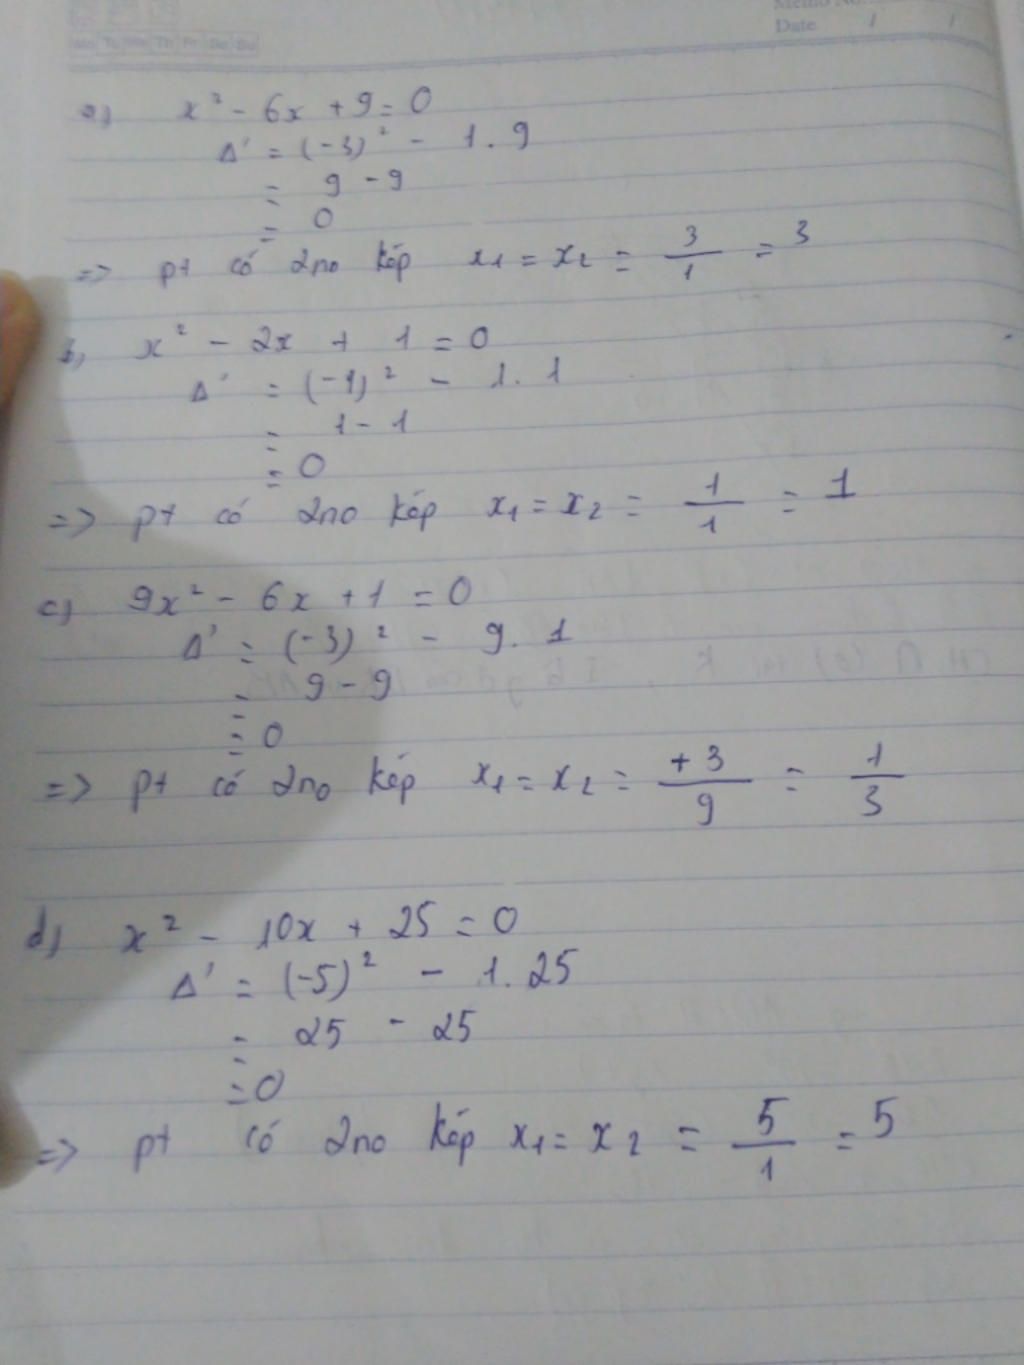 Memo No.
Date / /
Mo Tu We Th Fr Sa Su
a) x² - 6x + 9 = 0
Δ' = (-3)² - 1 . 9
= 9 - 9
= 0
=> pt có 2no kép x₁ = x₂ = 3/1 = 3
b, x² - 2x + 1 = 0
Δ' = (-1)² - 1 . 1
= 1 - 1
= 0
=> pt có 2no kép x₁ = x₂ = 1/1 = 1
c) 9x² - 6x + 1 = 0
Δ' = (-3)² - 9 . 1
= 9 - 9
= 0
=> pt có 2no kép x₁ = x₂ = +3/9 = 1/3
d) x² - 10x + 25 = 0
Δ' = (-5)² - 1 . 25
= 25 - 25
= 0
=> pt có 2no kép x₁ = x₂ = 5/1 = 5